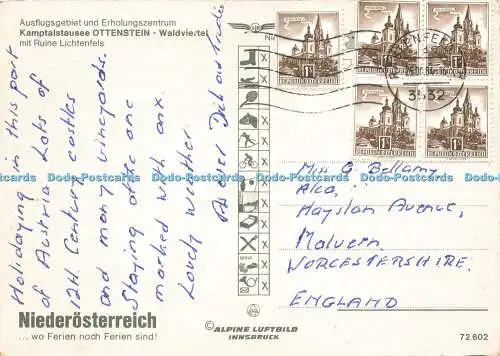 Ausflugsgebiet und Erholungszentrum
Kamptalstausee OTTENSTEIN - Waldviertel
mit Ruine Lichtenfels
Holidaying in this part
of Austria Lots of
12th Century castles
and many vineyards.
Staying place one
marked with an x.
Lovely weather.
Niederösterreich
... wo Ferien noch Ferien sind!
REPUBLIK ÖSTERREICH
REPUBLIK ÖSTERREICH
REPUBLIK ÖSTERREICH
REPUBLIK ÖSTERREICH
REPUBLIK ÖSTERREICH
3532
Miss G Bellamy
Alca,
Hayslan Avenue,
Malvern.
WORCESTERSHIRE.
ENGLAND
© ALPINE LUFTBILD
INNSBRUCK
72 602
Dodo-Postcards Dodo-Postcards Dodo-Postcards Dodo-Postcards